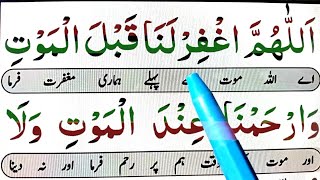 اَللّٰهُمَّ اغْفِرْلَنَا قَبْلَ الْمَوْتِ
اے اللہ موت پہلے ہماری مغفرت فرما
وَارْحَمْنَا عِنْدَ الْمَوْتِ وَلَا
اور موت وقت ہم پر رحم فرما اور نہ دینا